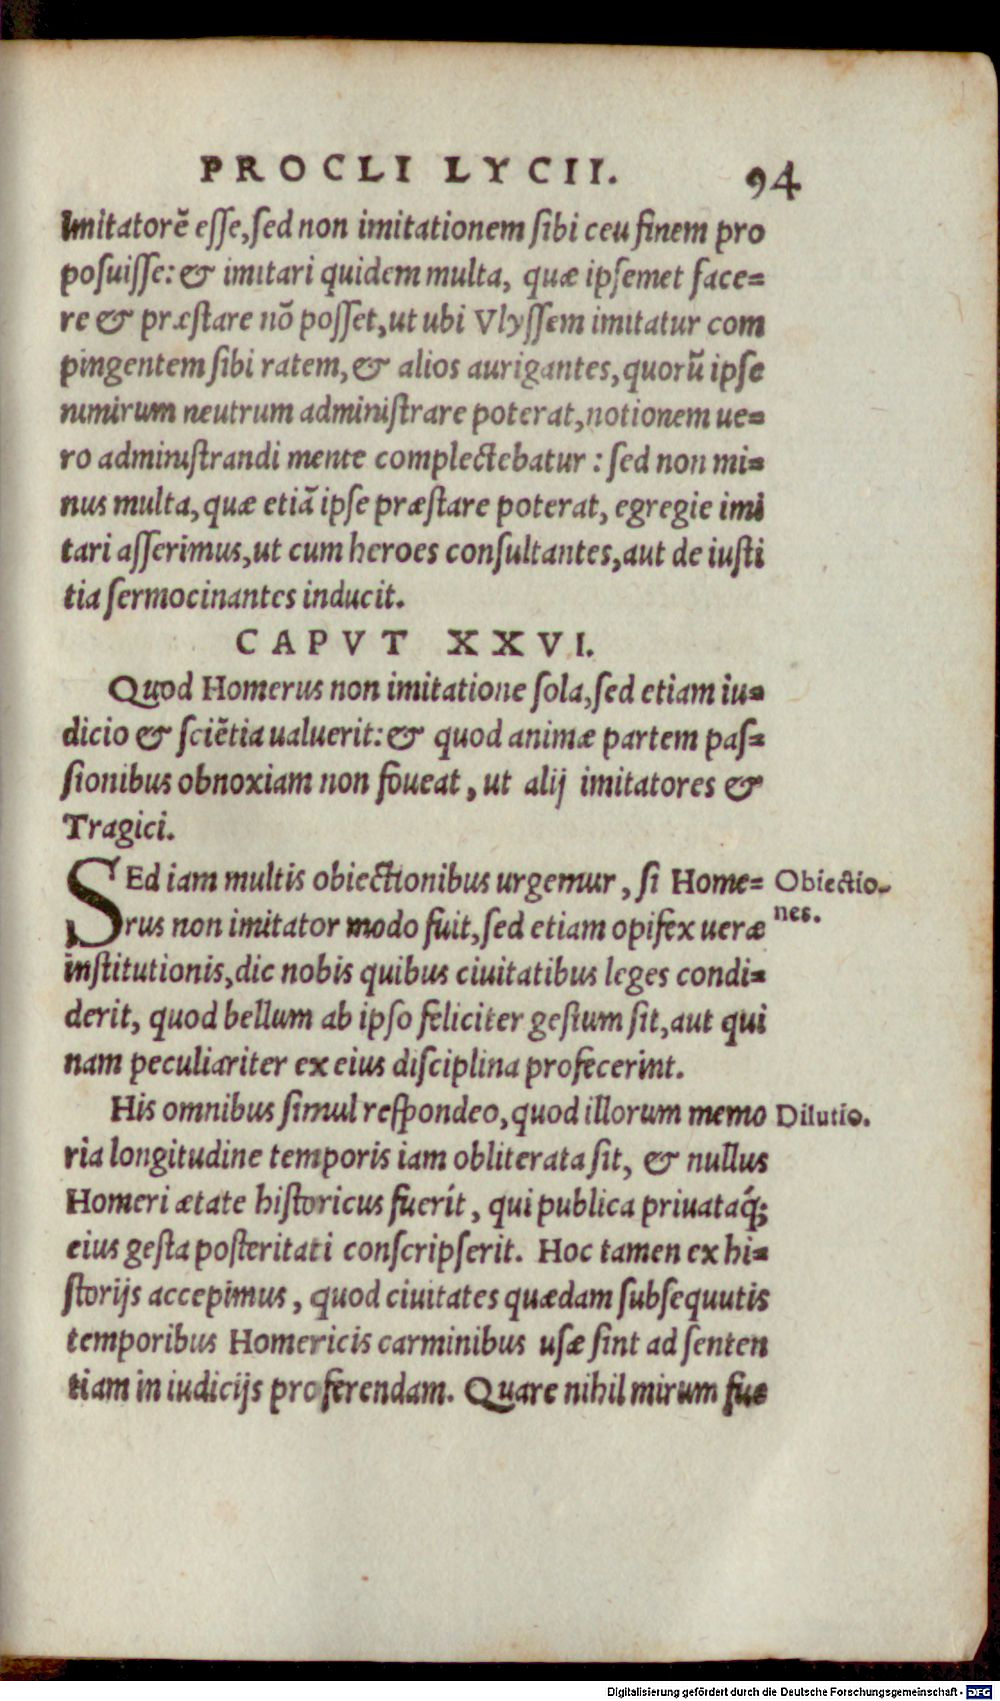 PROCLI LYCII. 94
Imitatorē esse, sed non imitationem sibi ceu finem pro
posuisse: & imitari quidem multa, quæ ipsemet face=
re & præstare nō posset, ut ubi Vlyssem imitatur com
pingentem sibi ratem, & alios aurigantes, quorū ipse
nimirum neutrum administrare poterat, notionem ue=
ro administrandi mente complectebatur : sed non mi=
nus multa, quæ etiā ipse præstare poterat, egregie imi
tari asserimus, ut cum heroes consultantes, aut de iusti
tia sermocinantes inducit.
CAPVT XXVI.
Quod Homerus non imitatione sola, sed etiam iu=
dicio & sciētia ualuerit: & quod animæ partem pas=
sionibus obnoxiam non foueat, ut alij imitatores &
Tragici.
SEd iam multis obiectionibus urgemur, si Home=
Obiectio-
rus non imitator modo fuit, sed etiam opifex ueræ
nes.
institutionis, dic nobis quibus ciuitatibus leges condi=
derit, quod bellum ab ipso feliciter gestum sit, aut qui
nam peculiariter ex eius disciplina profecerint.
His omnibus simul respondeo, quod illorum memo
Dilutio.
ria longitudine temporis iam obliterata sit, & nullus
Homeri ætate historicus fuerit, qui publica priuataq́;
eius gesta posteritati conscripserit. Hoc tamen ex hi=
storijs accepimus, quod ciuitates quædam subsequutis
temporibus Homericis carminibus usæ sint ad senten
tiam in iudicijs proferendam. Quare nihil mirum fue
Digitalisierung gefördert durch die Deutsche Forschungsgemeinschaft - DFG